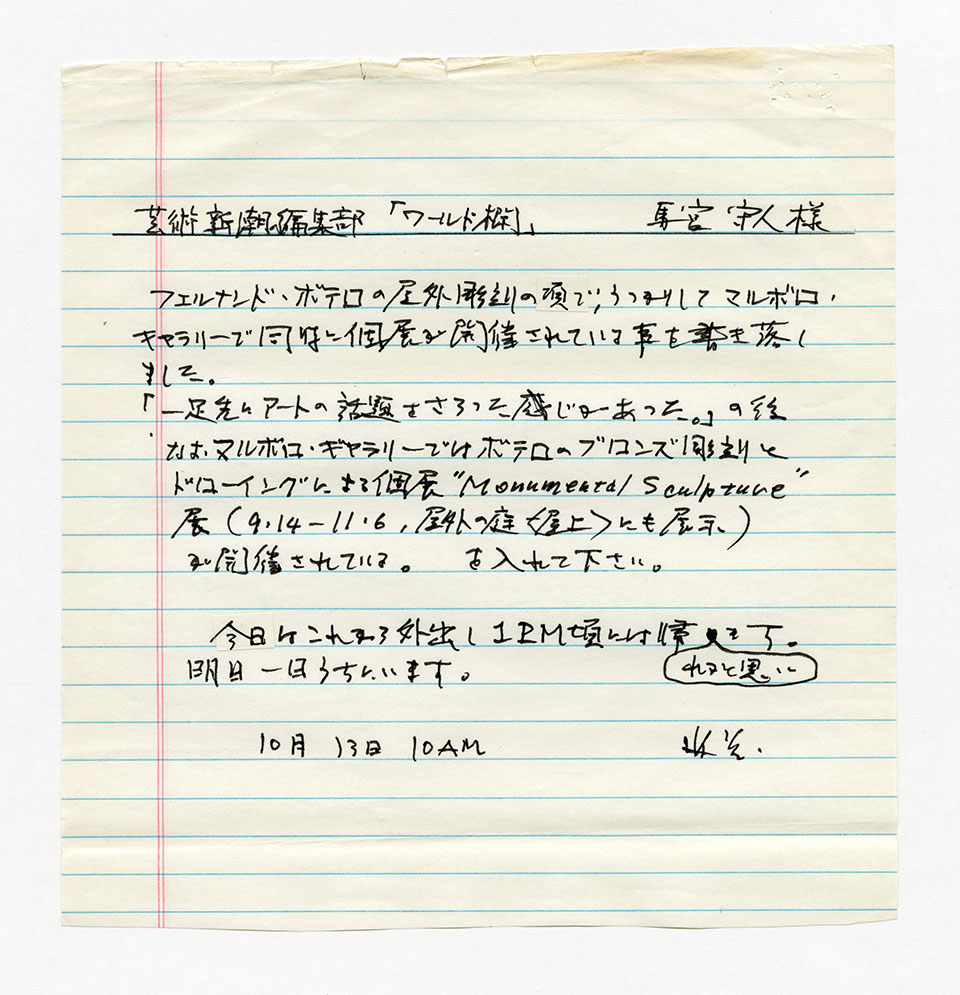 芸術新潮編集部「ワールド欄」 馬宮守人様
フェルナンド・ボテロの屋外彫刻の項で、うっかりして マルボロ・
ギャラリーで同時に個展が開催されている事を書き落し
ました。
「一足先にアートの話題をさらった感じがあった。」の後
なお、マルボロ・ギャラリーではボテロのブロンズ彫刻と
ドローイングによる個展“Monumental Sculpture”
展(9.14-11.6,屋外の庭〈屋上〉にも展示)
が開催されている。 を入れて下さい。
今日はこれから外出し1PM頃には帰ます。
れると思い
明日一日うちにいます。
10月 13日 10AM